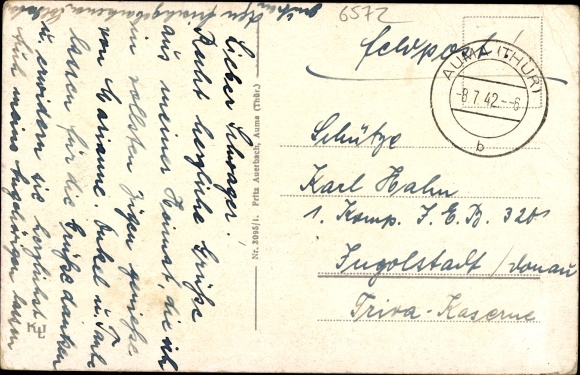 6572
Feldpost!
AUMA (THÜR)
-8.7.42.--6
b
Schütze
Karl Hahn
1. Komp. I.E.B. 320
Ingolstadt/Donau
Triva-Kaserne
Nr. 3095/1. Fritz Auerbach, Auma (Thür.)
Lieber Schwager!
Recht herzliche Grüße
aus meiner Heimat, die ich
in vollsten Zügen genieße
von Marianne. Onkel u. Tante
lassen für die Grüße danken
u. erwidern sie herzlichst
Auch meine Angehörigen lassen